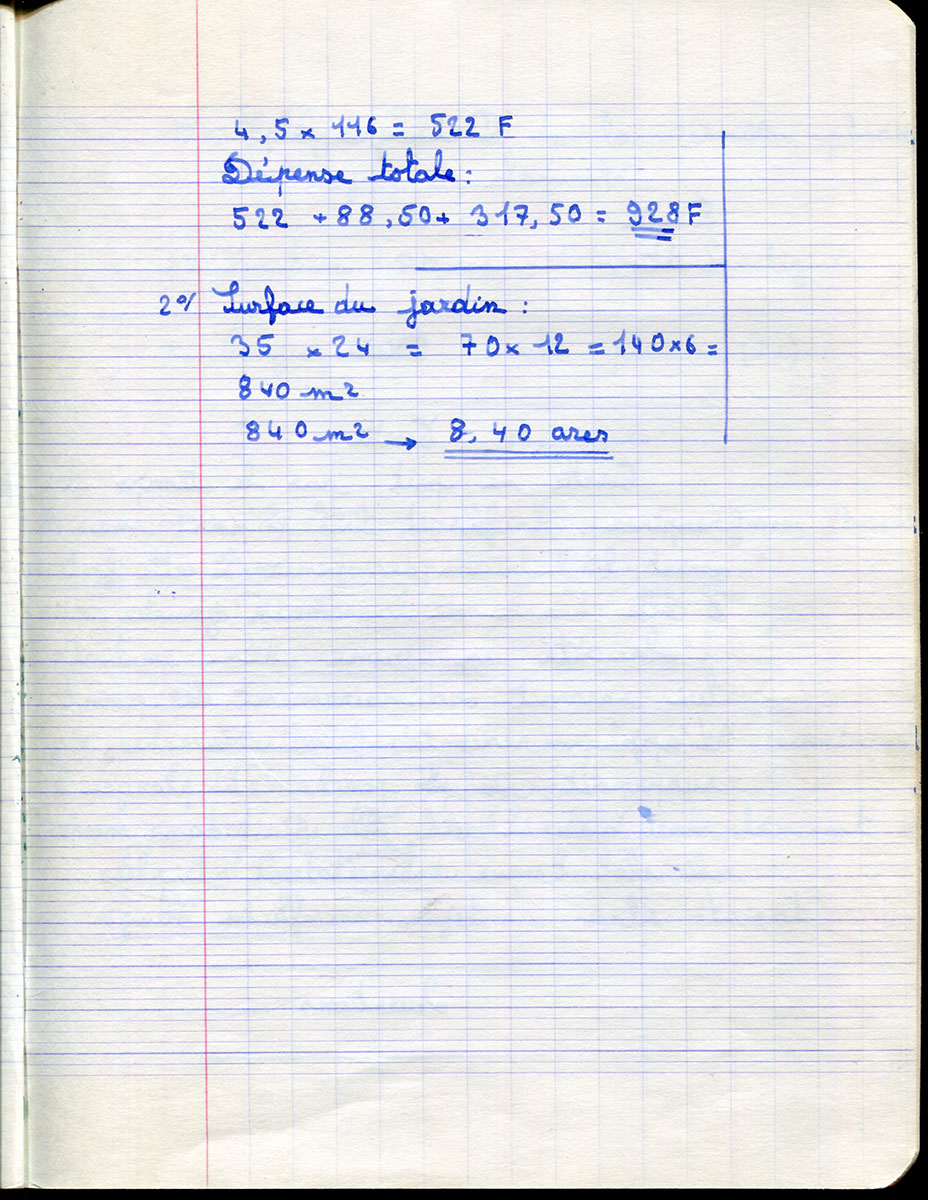 4,5 × 116 = 522 F
Dépense totale :
522 + 88,50 + 317,50 = 928 F
2°/ Surface du jardin :
35 × 24 = 70 × 12 = 140 × 6 =
840 m2
840 m2 → 8,40 ares